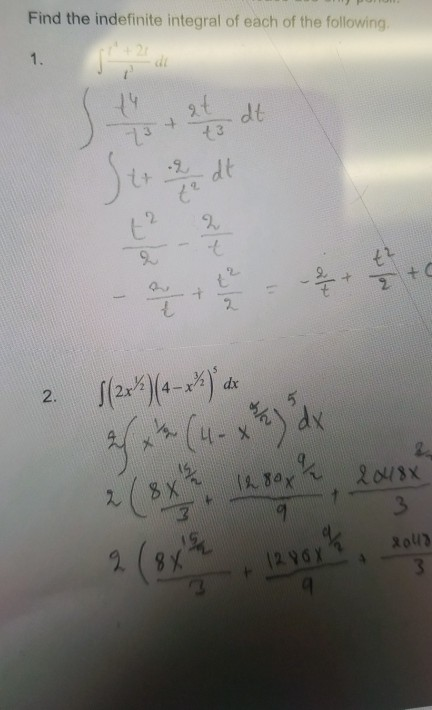 Find the indefinite integral of each of the following.
1. ∫ (t⁴ + 2t)/t³ dt
∫ t⁴/t³ + 2t/t³ dt
∫ t + 2/t² dt
t²/2 - 2/t
- 2/t + t²/2 = - 2/t + t²/2 + C
2. ∫(2x^½)(4-x^(3/2))⁵ dx
2∫ x^½ (4 - x^(3/2))⁵ dx
2 ( 8x^(15/2)/3 + 1280x^(9/2)/9 + 2048x/3
2 ( 8x^(15/2)/3 + 1280x^(9/2)/9 + 2048/3